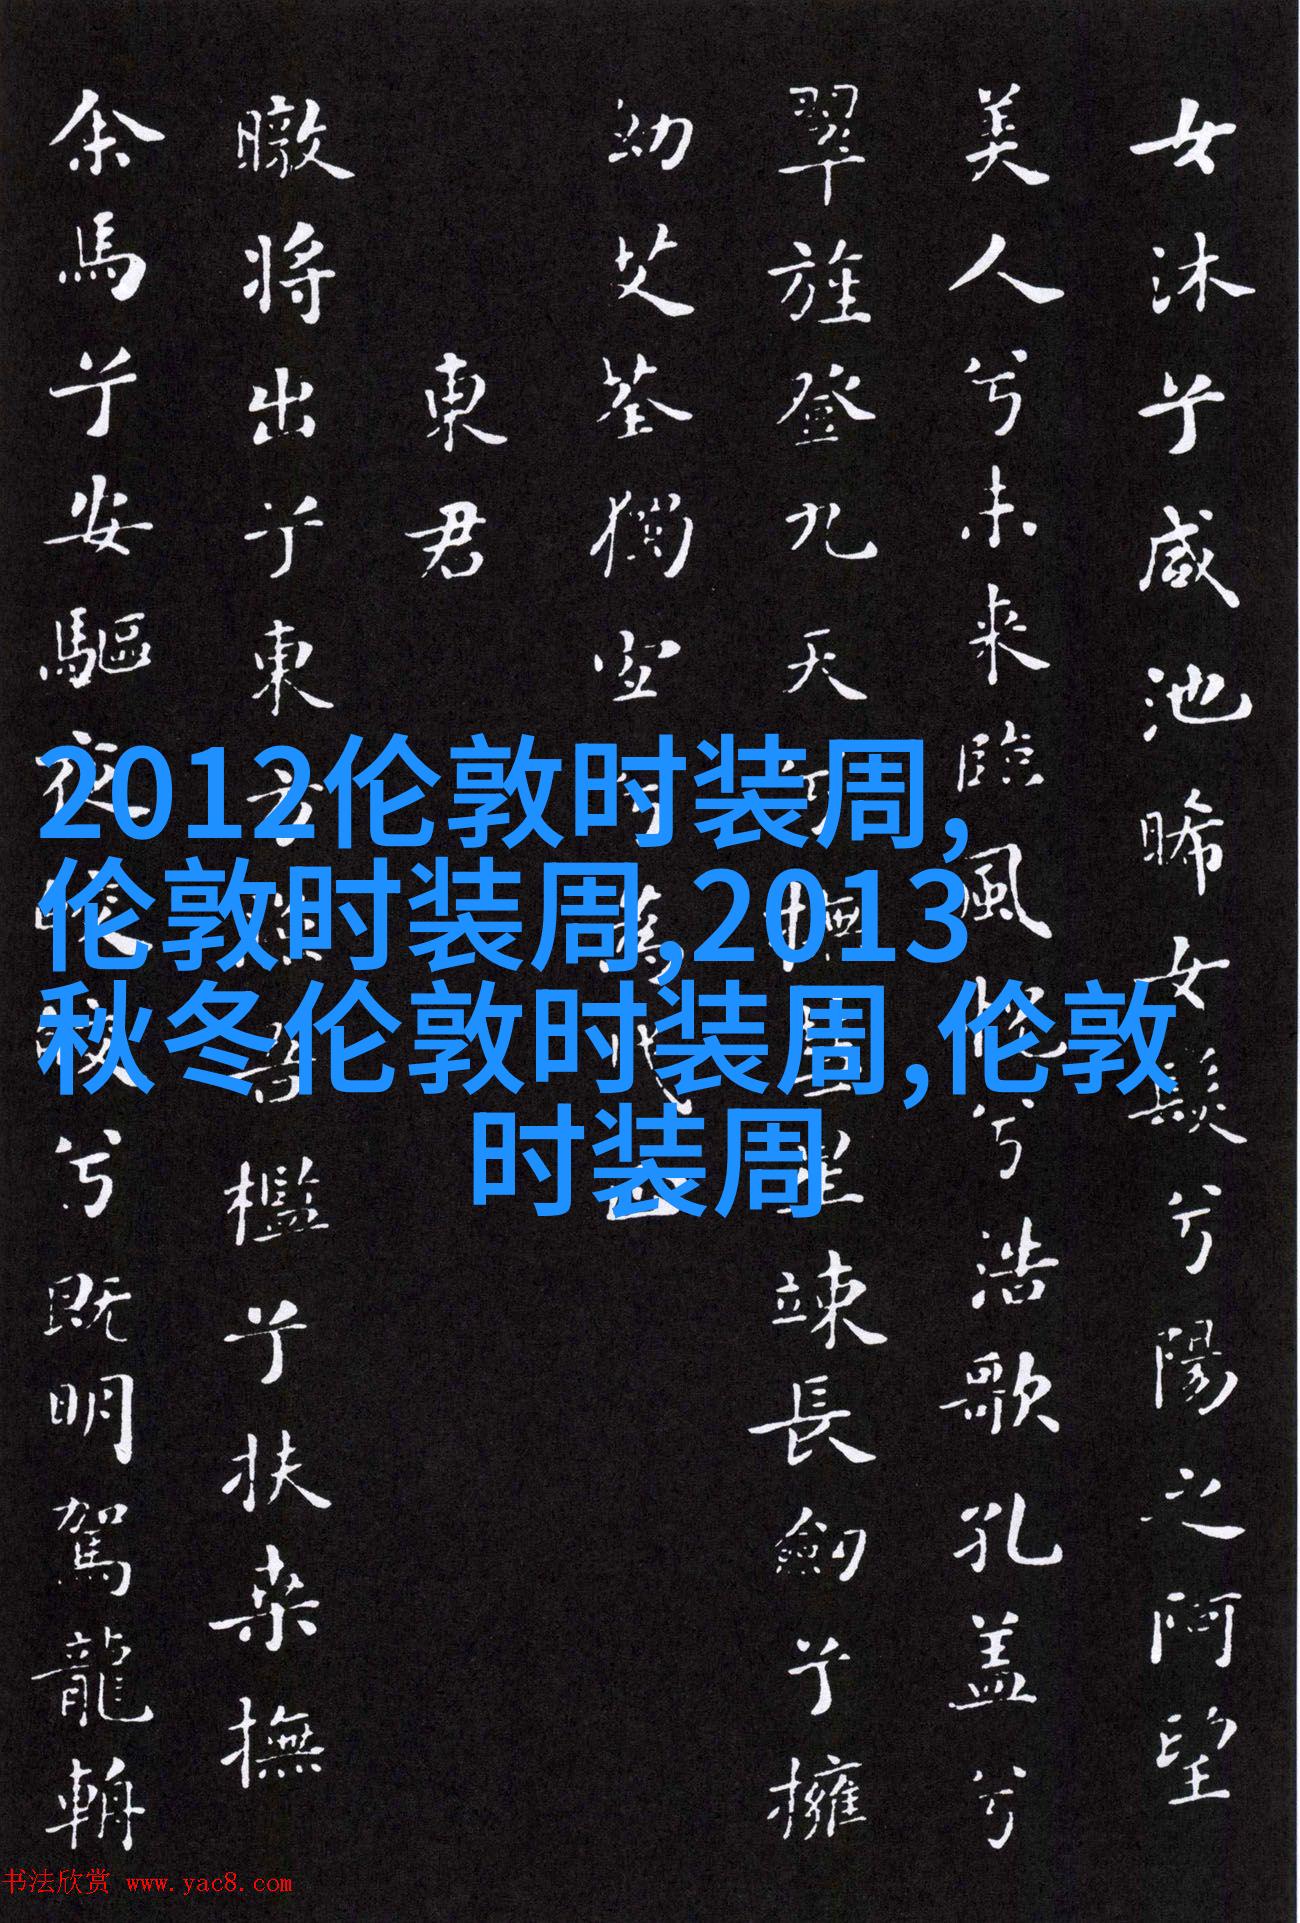 女沐兮咸池晞女髮兮陽之阿望
美人兮未来臨風怳兮浩歌孔盖兮
翠旌登九天撫竦長劍兮擁
幼艾荃獨宜
東君
暾将出兮東方吾檻兮扶桑撫
余馬兮安驅夜皎兮既明駕龍輈
2012伦敦时装周,
伦敦时装周,2013
秋冬伦敦时装周,伦敦
时装周
书法欣赏 www.yac8.com